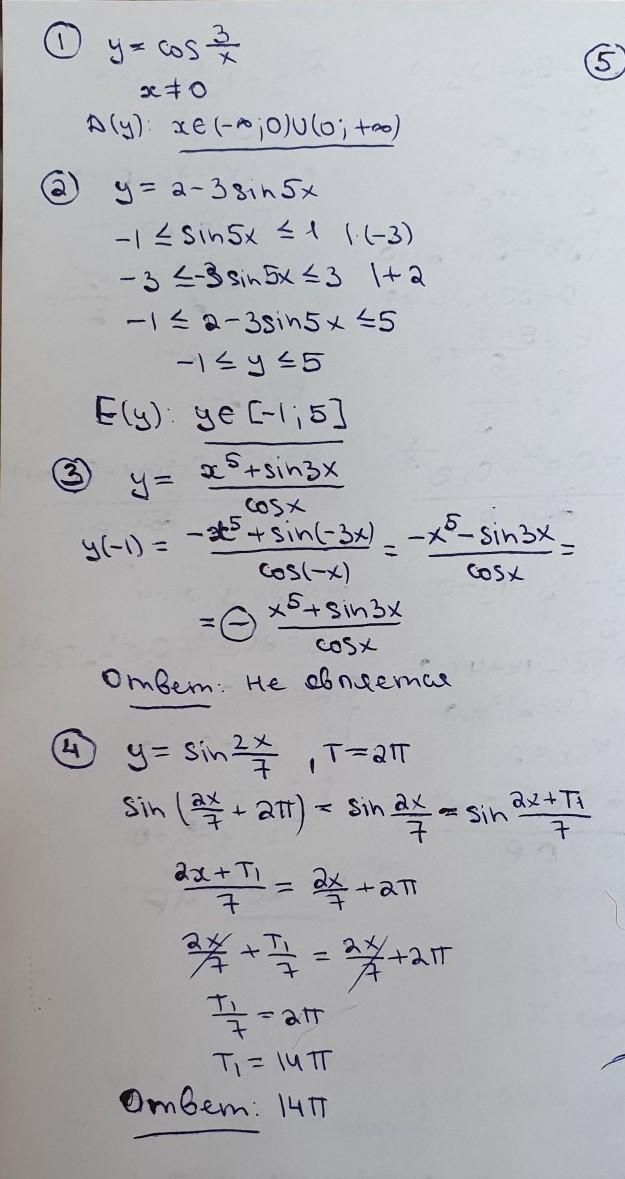 ① y = cos 3/x
⑤
x ≠ 0
D(y): x∈(-∞;0)∪(0;+∞)
② y = 2-3sin5x
-1 ≤ sin5x ≤ 1 |·(-3)
-3 ≤ -3sin5x ≤ 3 |+2
-1 ≤ 2-3sin5x ≤ 5
-1 ≤ y ≤ 5
E(y): y∈[-1;5]
③ y = (x⁵+sin3x)/cosx
y(-1) = (-x⁵+sin(-3x))/cos(-x) = (-x⁵-sin3x)/cosx =
= ⊖ (x⁵+sin3x)/cosx
Ответ: не является
④ y = sin 2x/7, T=2π
sin(2x/7 + 2π) = sin 2x/7 = sin (2x+T₁)/7
(2x+T₁)/7 = 2x/7 + 2π
2x/7 + T₁/7 = 2x/7 + 2π
T₁/7 = 2π
T₁ = 14π
Ответ: 14π